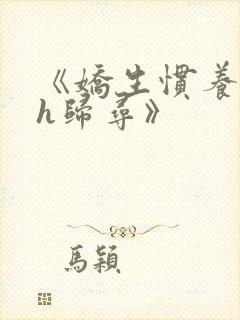 《嬌生慣養
h歸尋》
馬穎